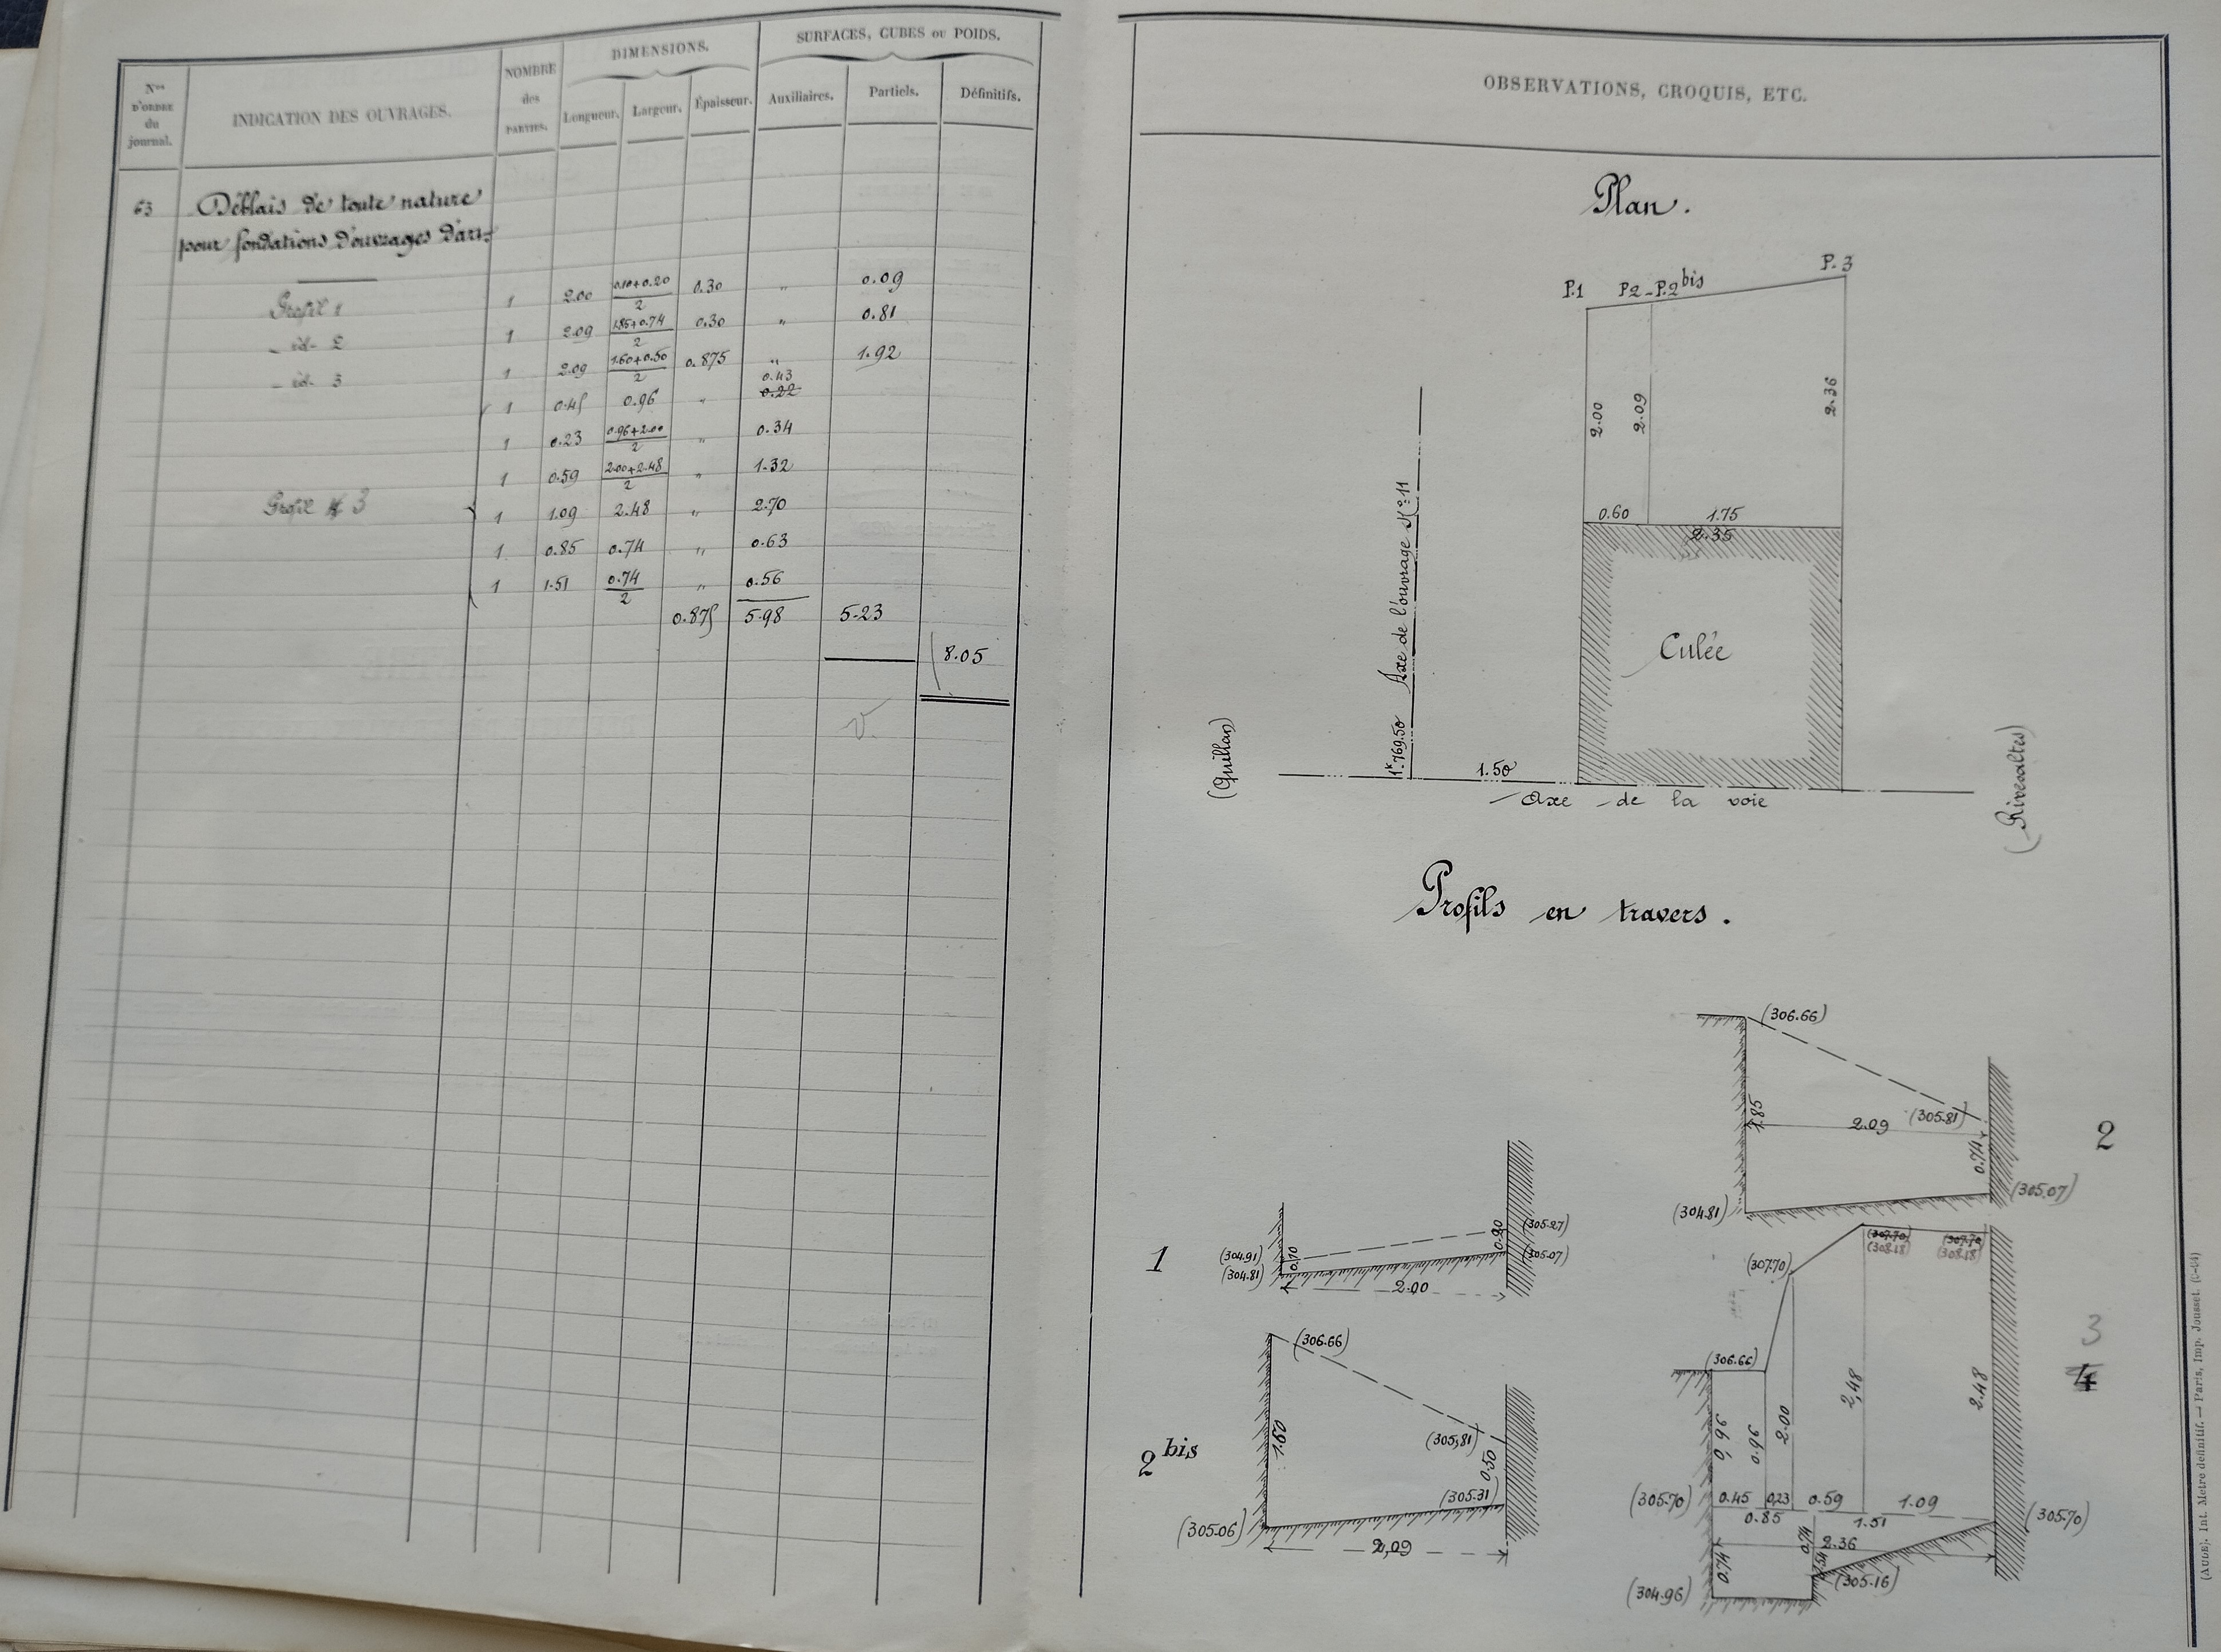 Nos D'ORDRE du journal.
INDICATION DES OUVRAGES.
NOMBRE des PARTIES.
DIMENSIONS.
Longueur. Largeur. Épaisseur.
SURFACES, CUBES ou POIDS.
Auxiliaires. Partiels. Définitifs.
63 Déblais de toute nature
pour fondations d'ouvrages d'art
Profil 1 1 2.00 0.10+0.20/2 0.30 " 0.09
_ id- 2 1 2.09 1.85+0.74/2 0.30 " 0.81
_ id- 3 1 2.09 1.60+0.50/2 0.875 " 1.92
0.43
1 0.45 0.96 " 0.22
1 0.23 0.96+2.00/2 " 0.34
1 0.59 2.00+2.48/2 " 1.32
Profil 3 1 1.09 2.48 " 2.70
1 0.85 0.74 " 0.63
1 1.51 0.74/2 " 0.56
0.875 5.98 5.23
8.05
V.
OBSERVATIONS, CROQUIS, ETC.
Plan.
P.1 P2-P.2bis P.3
2.00 2.09 2.36
0.60 1.75
2.35
Culée
1k.769.50 Axe de l'ouvrage No 11
(Quillan)
1.50
Axe de la voie
(Rivesaltes)
Profils en travers.
(306.66)
1.85
2.09
(305.81)
0.74
(304.81)
(305.07)
2
1
(304.91)
(304.81)
0.10
0.20
(305.27)
(305.07)
2.00
2bis
(306.66)
1.60
(305,81)
0.50
(305.31)
(305.06)
2,09
(307.70)
(307.70)
(308.18)
(307.70)
(308.18)
(306.66)
3
4
0.96 0.96 2.00 2,48 2.48
(305.70) 0.45 0.23 0.59 1.09 (305.70)
0.85 1.51
0.74
2.36
0.74
(305.16)
(304.96)
(AUDE). Int. Métré définitif. — Paris, Imp. Jousset. (6-04)